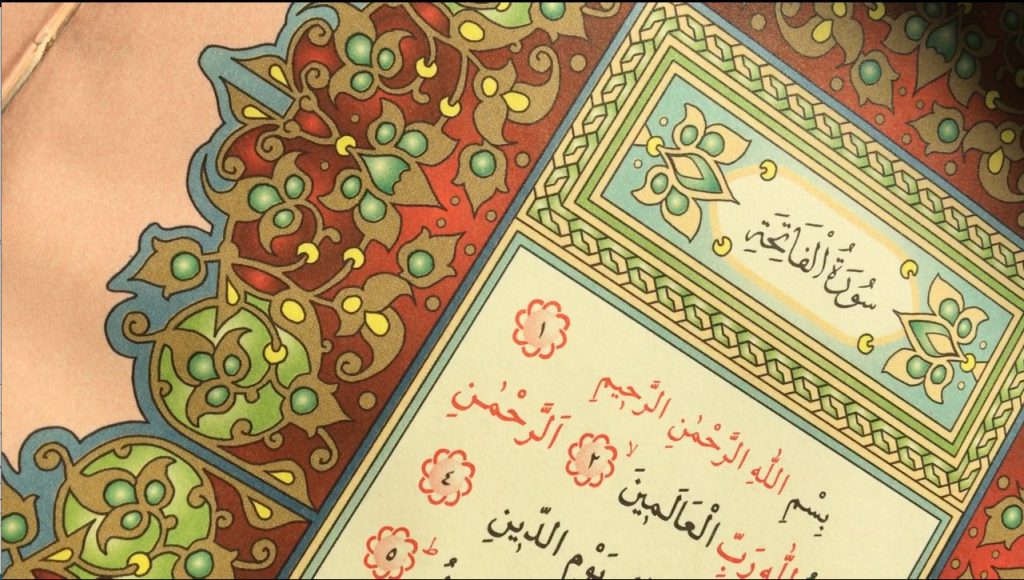 سُورَةُ الْفَاتِحَةِ
بِسْمِ اللّٰهِ الرَّحْمٰنِ الرَّحِيمِ ١
رَبِّ الْعَالَمِينَ ۙ ٢ اَلرَّحْمٰنِ
يَوْمِ الدِّينِ ٤
ط ٥